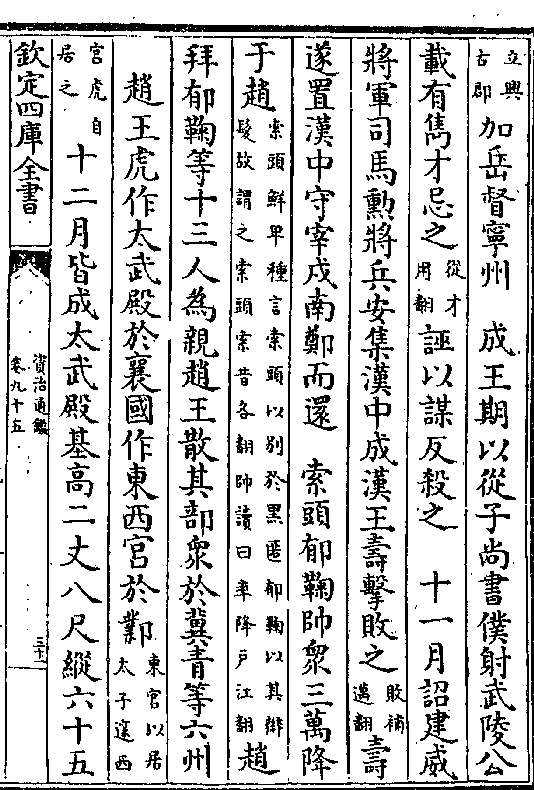 立興古郡加岳督寧州　成王期以從子尚書僕射武陵公
載有雋才忌之從才用翻誣以謀反殺之　十一月詔建威
將軍司馬勲將兵安集漢中成漢王壽擊敗之敗補邁翻壽
遂置漢中守宰戍南鄭而還　索頭郁鞠帥衆三萬降
于趙索頭鮮卑種言索頭以别於黑匿郁鞠以其辮髮故謂之索頭索昔各翻帥讀曰率降戶江翻趙
拜郁鞠等十三人為親趙王散其部衆於冀青等六州
趙王虎作太武殿於襄國作東西宮於鄴東宮以居太子邃西
宮虎自居之十二月皆成太武殿基高二丈八尺縱六十五
欽定四庫全書
資治通鑑
卷九十五
三十